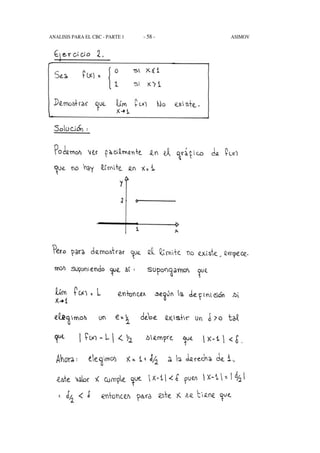 ANALISIS PARA EL CBC - PARTE 1 - 58 - ASIMOV
Ejercicio 2.
Sea f(x) = { 0 si x≤1
1 si x>1
Demostrar que lim f(x) No existe.
x→1
Solución:
Podemos ver facilmente en el gráfico de f(x)
que no hay límite en x=1
y
1
1 x
Pero para demostrar que el límite no existe, empece-
mos suponiendo que si. Supongamos que
lim f(x) = L entonces según la definición si
x→1
elegimos un e=½ debe existir un δ>0 tal
que |f(x)-L| < ½ siempre que |x-1| < δ.
Ahora: elegimos x = 1+δ/2 a la derecha de 1.
este valor x cumple que |x-1|<δ pues |x-1|=|δ/2|
= δ/2 < δ entonces para este x se tiene que